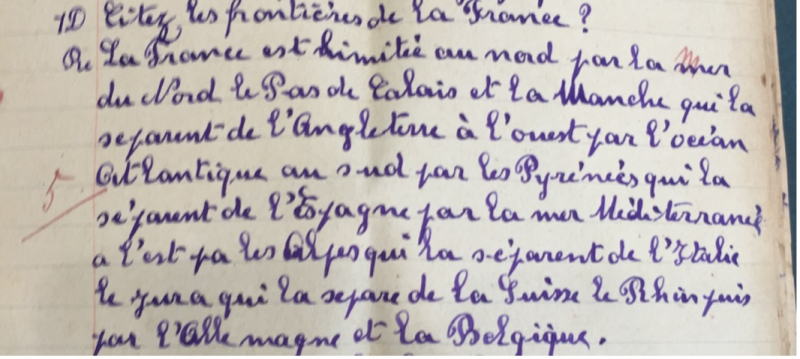 1D Citez les frontières de la France ?
R. La France est limitée au nord par la mer
du Nord le Pas de Calais et la Manche qui la
separent de l'Angleterre à l'ouest par l'océan
Atlantique au sud par les Pyrénées qui la
séparent de l'Espagne par la mer Méditerranée
a l'est pa les Alpes qui la séparent de l'Italie
le Jura qui la separe de la Suisse le Rhin puis
par l'Alle magne et la Belgique.
5